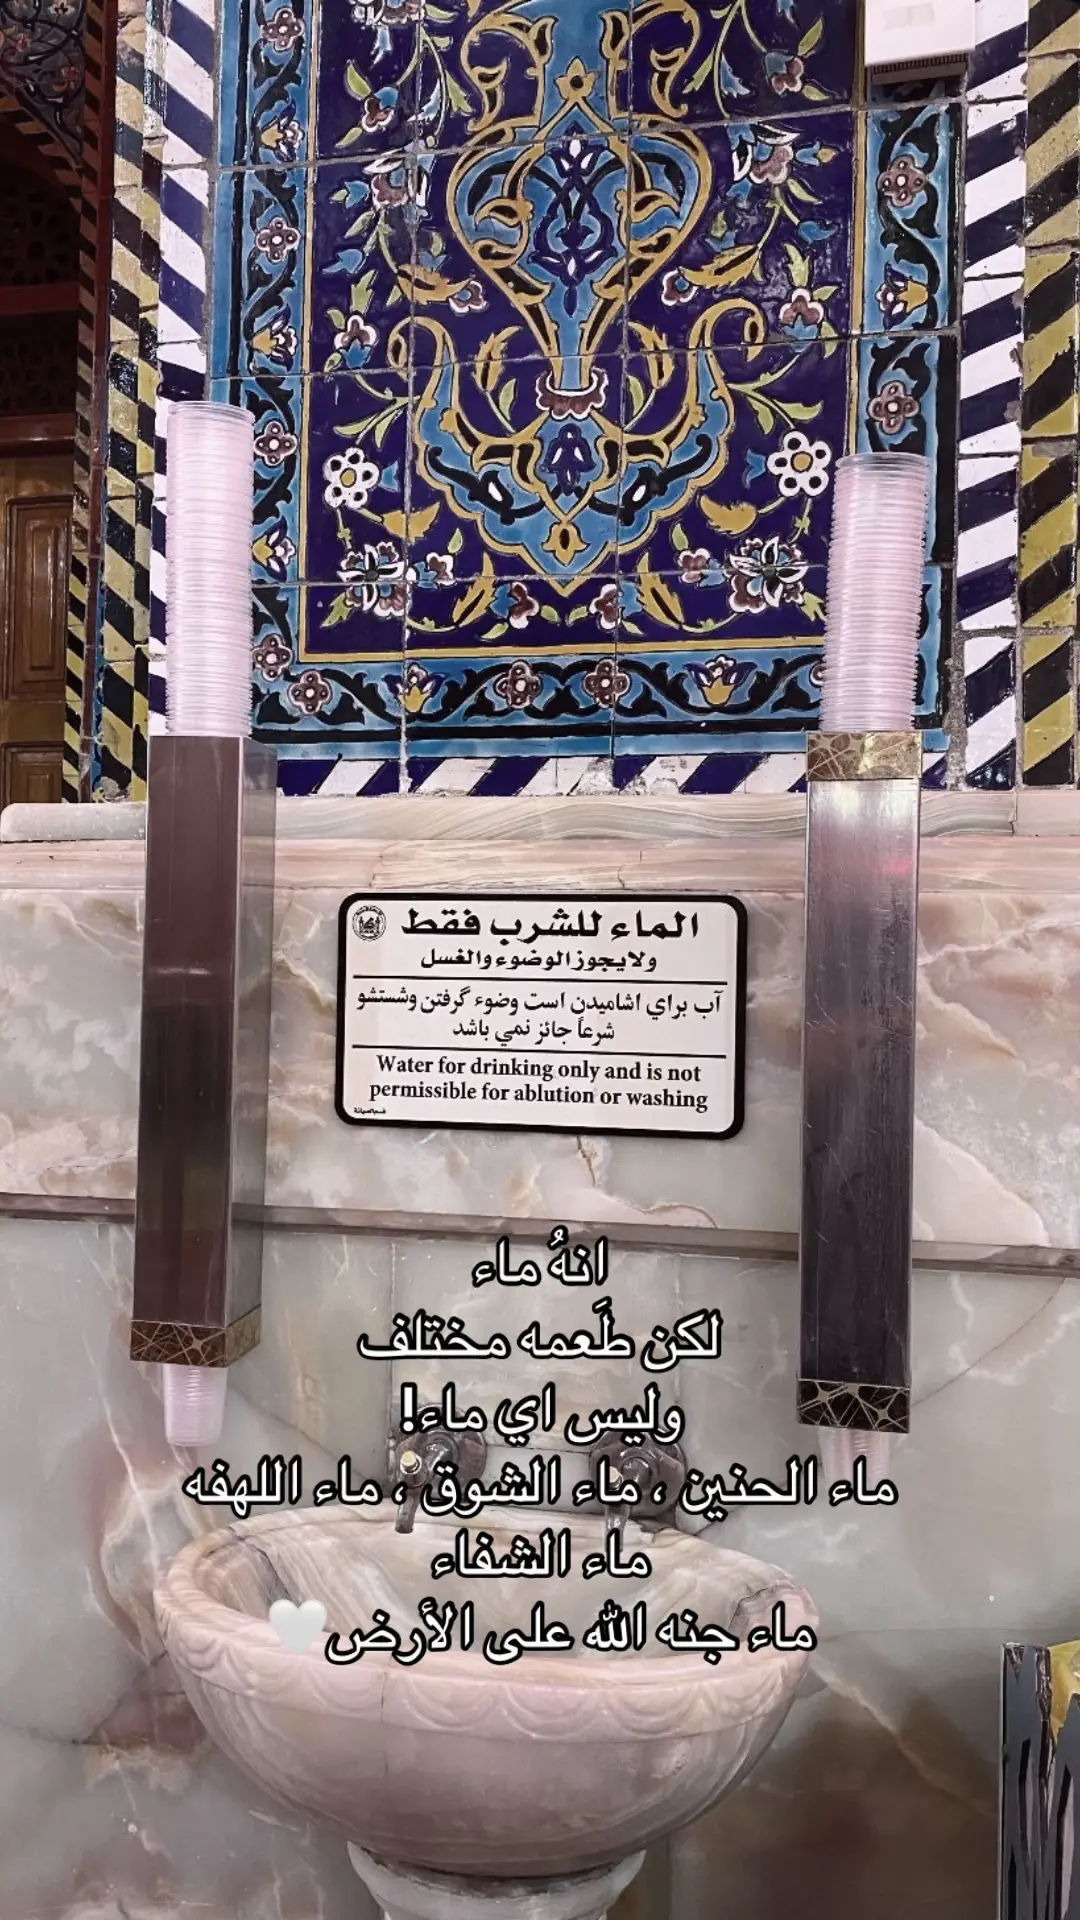 الماء للشرب فقط
ولايجوز الوضوء والغسل
آب براي اشاميدن است وضوء گرفتن وشستشو
شرعاً جائز نمي باشد
Water for drinking only and is not
permissible for ablution or washing
قسم الصيانة
انهُ ماء
لكن طَعمه مختلف
وليس اي ماء!
ماء الحنين ، ماء الشوق ، ماء اللهفه
ماء الشفاء
ماء جنه الله على الأرض🤍